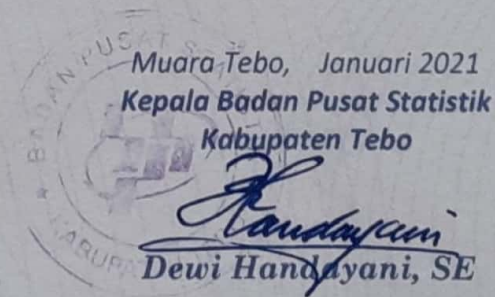 Muara Tebo, Januari 2021
Kepala Badan Pusat Statistik
Kabupaten Tebo
Handayani
Dewi Handayani, SE